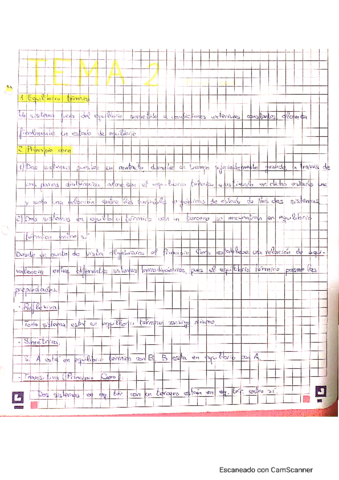 TEMA 2
1. Equilibrio térmico
Un sistema fuera del equilibrio sometido a condiciones externas constantes alcanza
finalmente un estado de equilibrio
2. Principio cero
1) Dos sistemas puestos en contacto durante un tiempo suficientemente grande a través de
una pared diatérmana alcanzan el equilibrio térmico
y existe una relación entre las variables de estado de los dos sistemas.
2) Dos sistemas en equilibrio térmico con un tercero se encuentran en equilibrio
térmico entre sí
Desde un punto de vista algebraico el Principio Cero establece una relación de equi-
valencia entre diferentes sistemas termodinámicos pues el equilibrio térmico posee las
propiedades:
- Reflexiva:
Todo sistema está en equilibrio térmico consigo mismo.
- Simétrica:
Si A está en equilibrio térmico con B, B está en equilibrio con A.
- Transitiva (Principio Cero)
Dos sistemas en eq. tér. con un tercero están en eq. tér. entre sí.
Escaneado con CamScanner